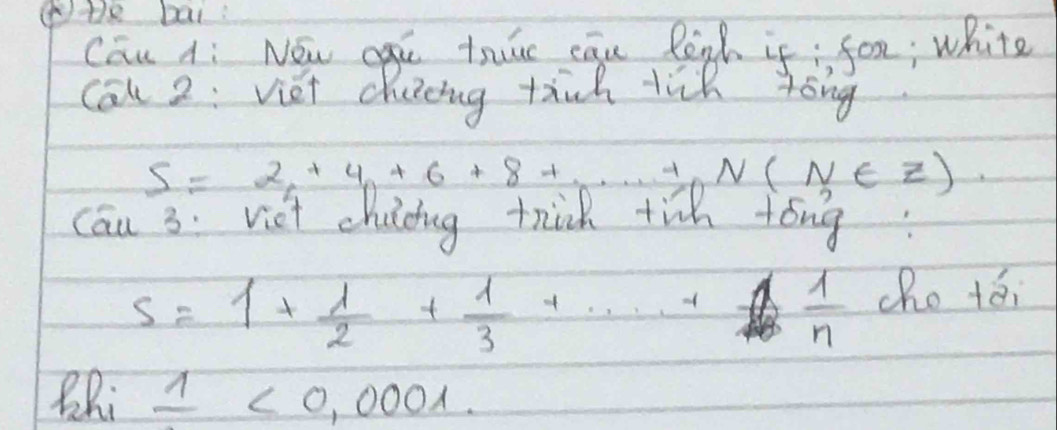 Đề bài:
Câu 1: Nêu cấu trúc câu lệnh if; for; white
Câu 2: Viết chương trình tính tổng.
S = 2 + 4 + 6 + 8 + ..... + N (N ∈ Z).
Câu 3: Viết chương trình tính tổng:
S = 1 + 1/2 + 1/3 + ..... + 1/n cho tới
khi 1 < 0,0001.